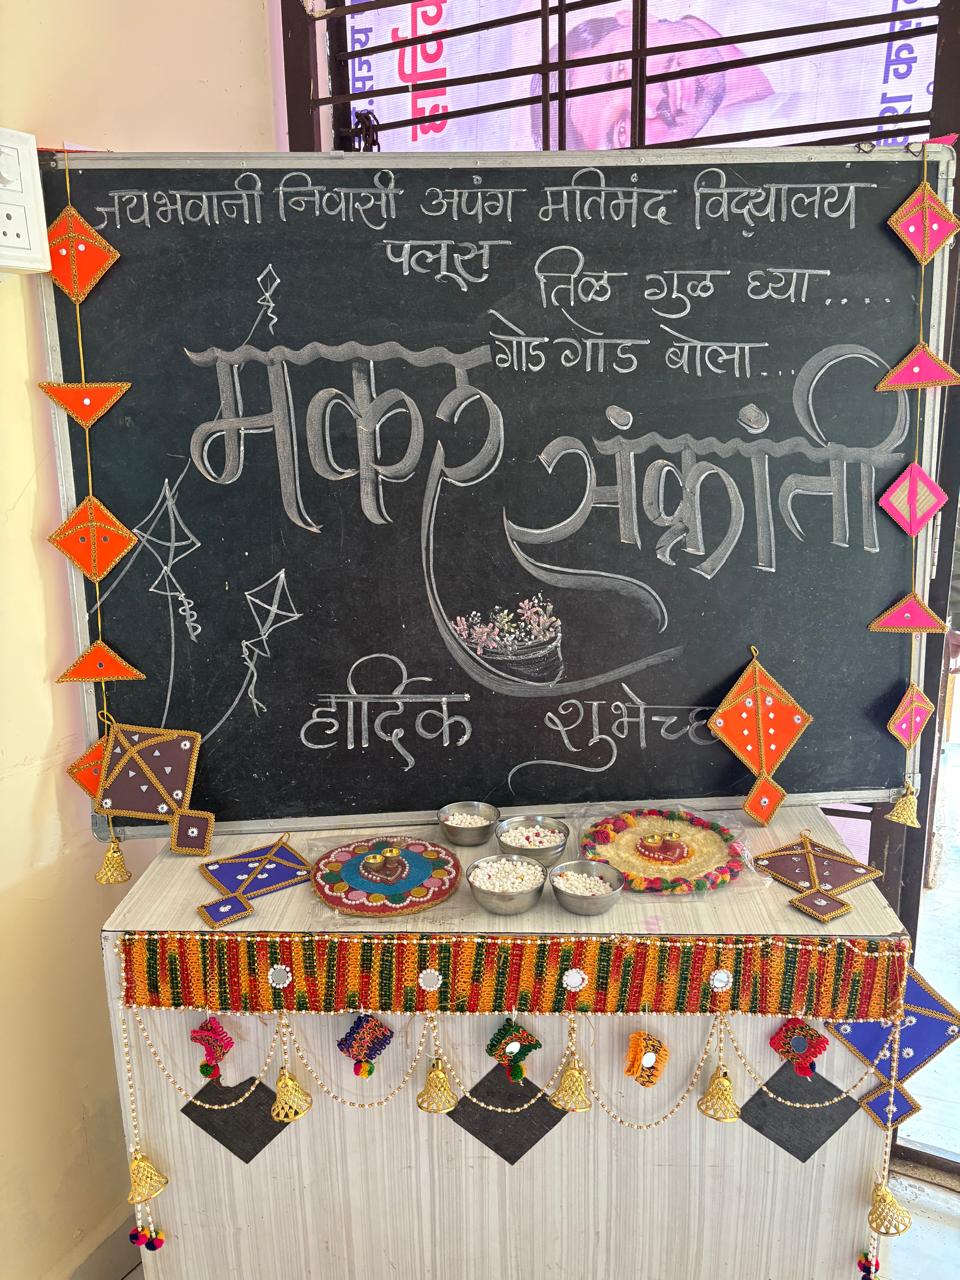 जयभवानी निवासी अपंग मतिमंद विद्यालय
पलूस
तिळ गुळ घ्या....
गोड गोड बोला...
मकर संक्रांती
हार्दिक शुभेच्छा